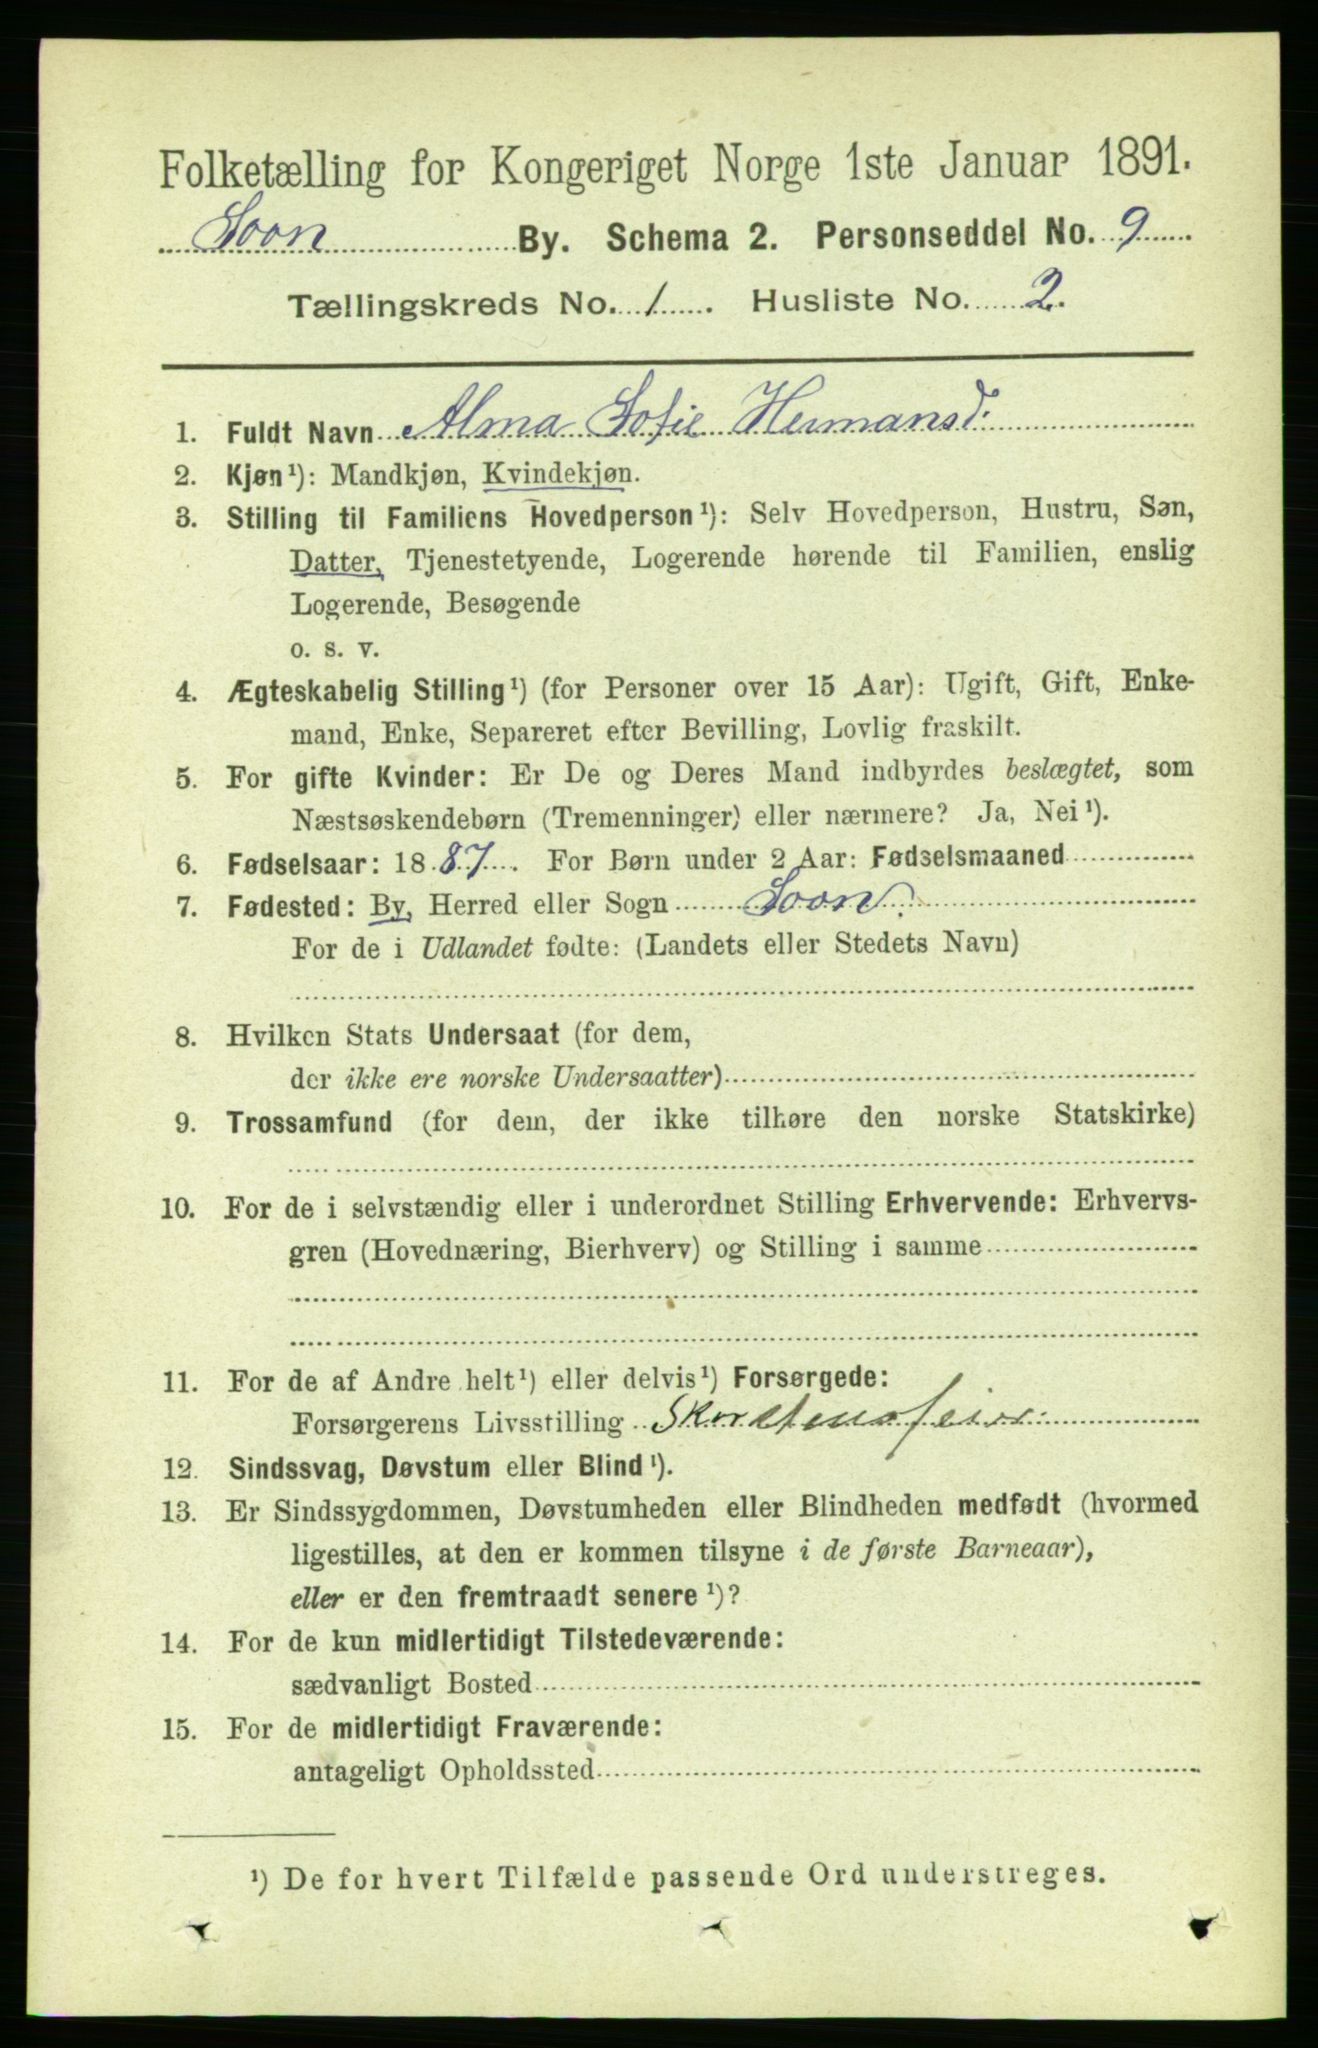 Folketælling for Kongeriget Norge 1ste Januar 1891.
Soon By. Schema 2. Personseddel No. 9
Tællingskreds No. 1. Husliste No. 2.
1. Fuldt Navn Alma Sofie Hermansd.
2. Kjøn¹): Mandkjøn, Kvindekjøn.
3. Stilling til Familiens Hovedperson¹): Selv Hovedperson, Hustru, Søn,
Datter, Tjenestetyende, Logerende hørende til Familien, enslig
Logerende, Besøgende
o. s. v.
4. Ægteskabelig Stilling¹) (for Personer over 15 Aar): Ugift, Gift, Enke-
mand, Enke, Separeret efter Bevilling, Lovlig fraskilt.
5. For gifte Kvinder: Er De og Deres Mand indbyrdes beslægtet, som
Næstsøskendebørn (Tremenninger) eller nærmere? Ja, Nei¹).
6. Fødselsaar: 1887. For Børn under 2 Aar: Fødselsmaaned
7. Fødested: By, Herred eller Sogn Soon.
For de i Udlandet fødte: (Landets eller Stedets Navn)
8. Hvilken Stats Undersaat (for dem,
der ikke ere norske Undersaatter)
9. Trossamfund (for dem, der ikke tilhøre den norske Statskirke)
10. For de i selvstændig eller i underordnet Stilling Erhvervende: Erhvervs-
gren (Hovednæring, Bierhverv) og Stilling i samme
11. For de af Andre helt¹) eller delvis¹) Forsørgede:
Forsørgerens Livsstilling Skorstensfeier.
12. Sindssvag, Døvstum eller Blind¹).
13. Er Sindssygdommen, Døvstumheden eller Blindheden medfødt (hvormed
ligestilles, at den er kommen tilsyne i de første Barneaar),
eller er den fremtraadt senere¹)?
14. For de kun midlertidigt Tilstedeværende:
sædvanligt Bosted
15. For de midlertidigt Fraværende:
antageligt Opholdssted
¹) De for hvert Tilfælde passende Ord understreges.